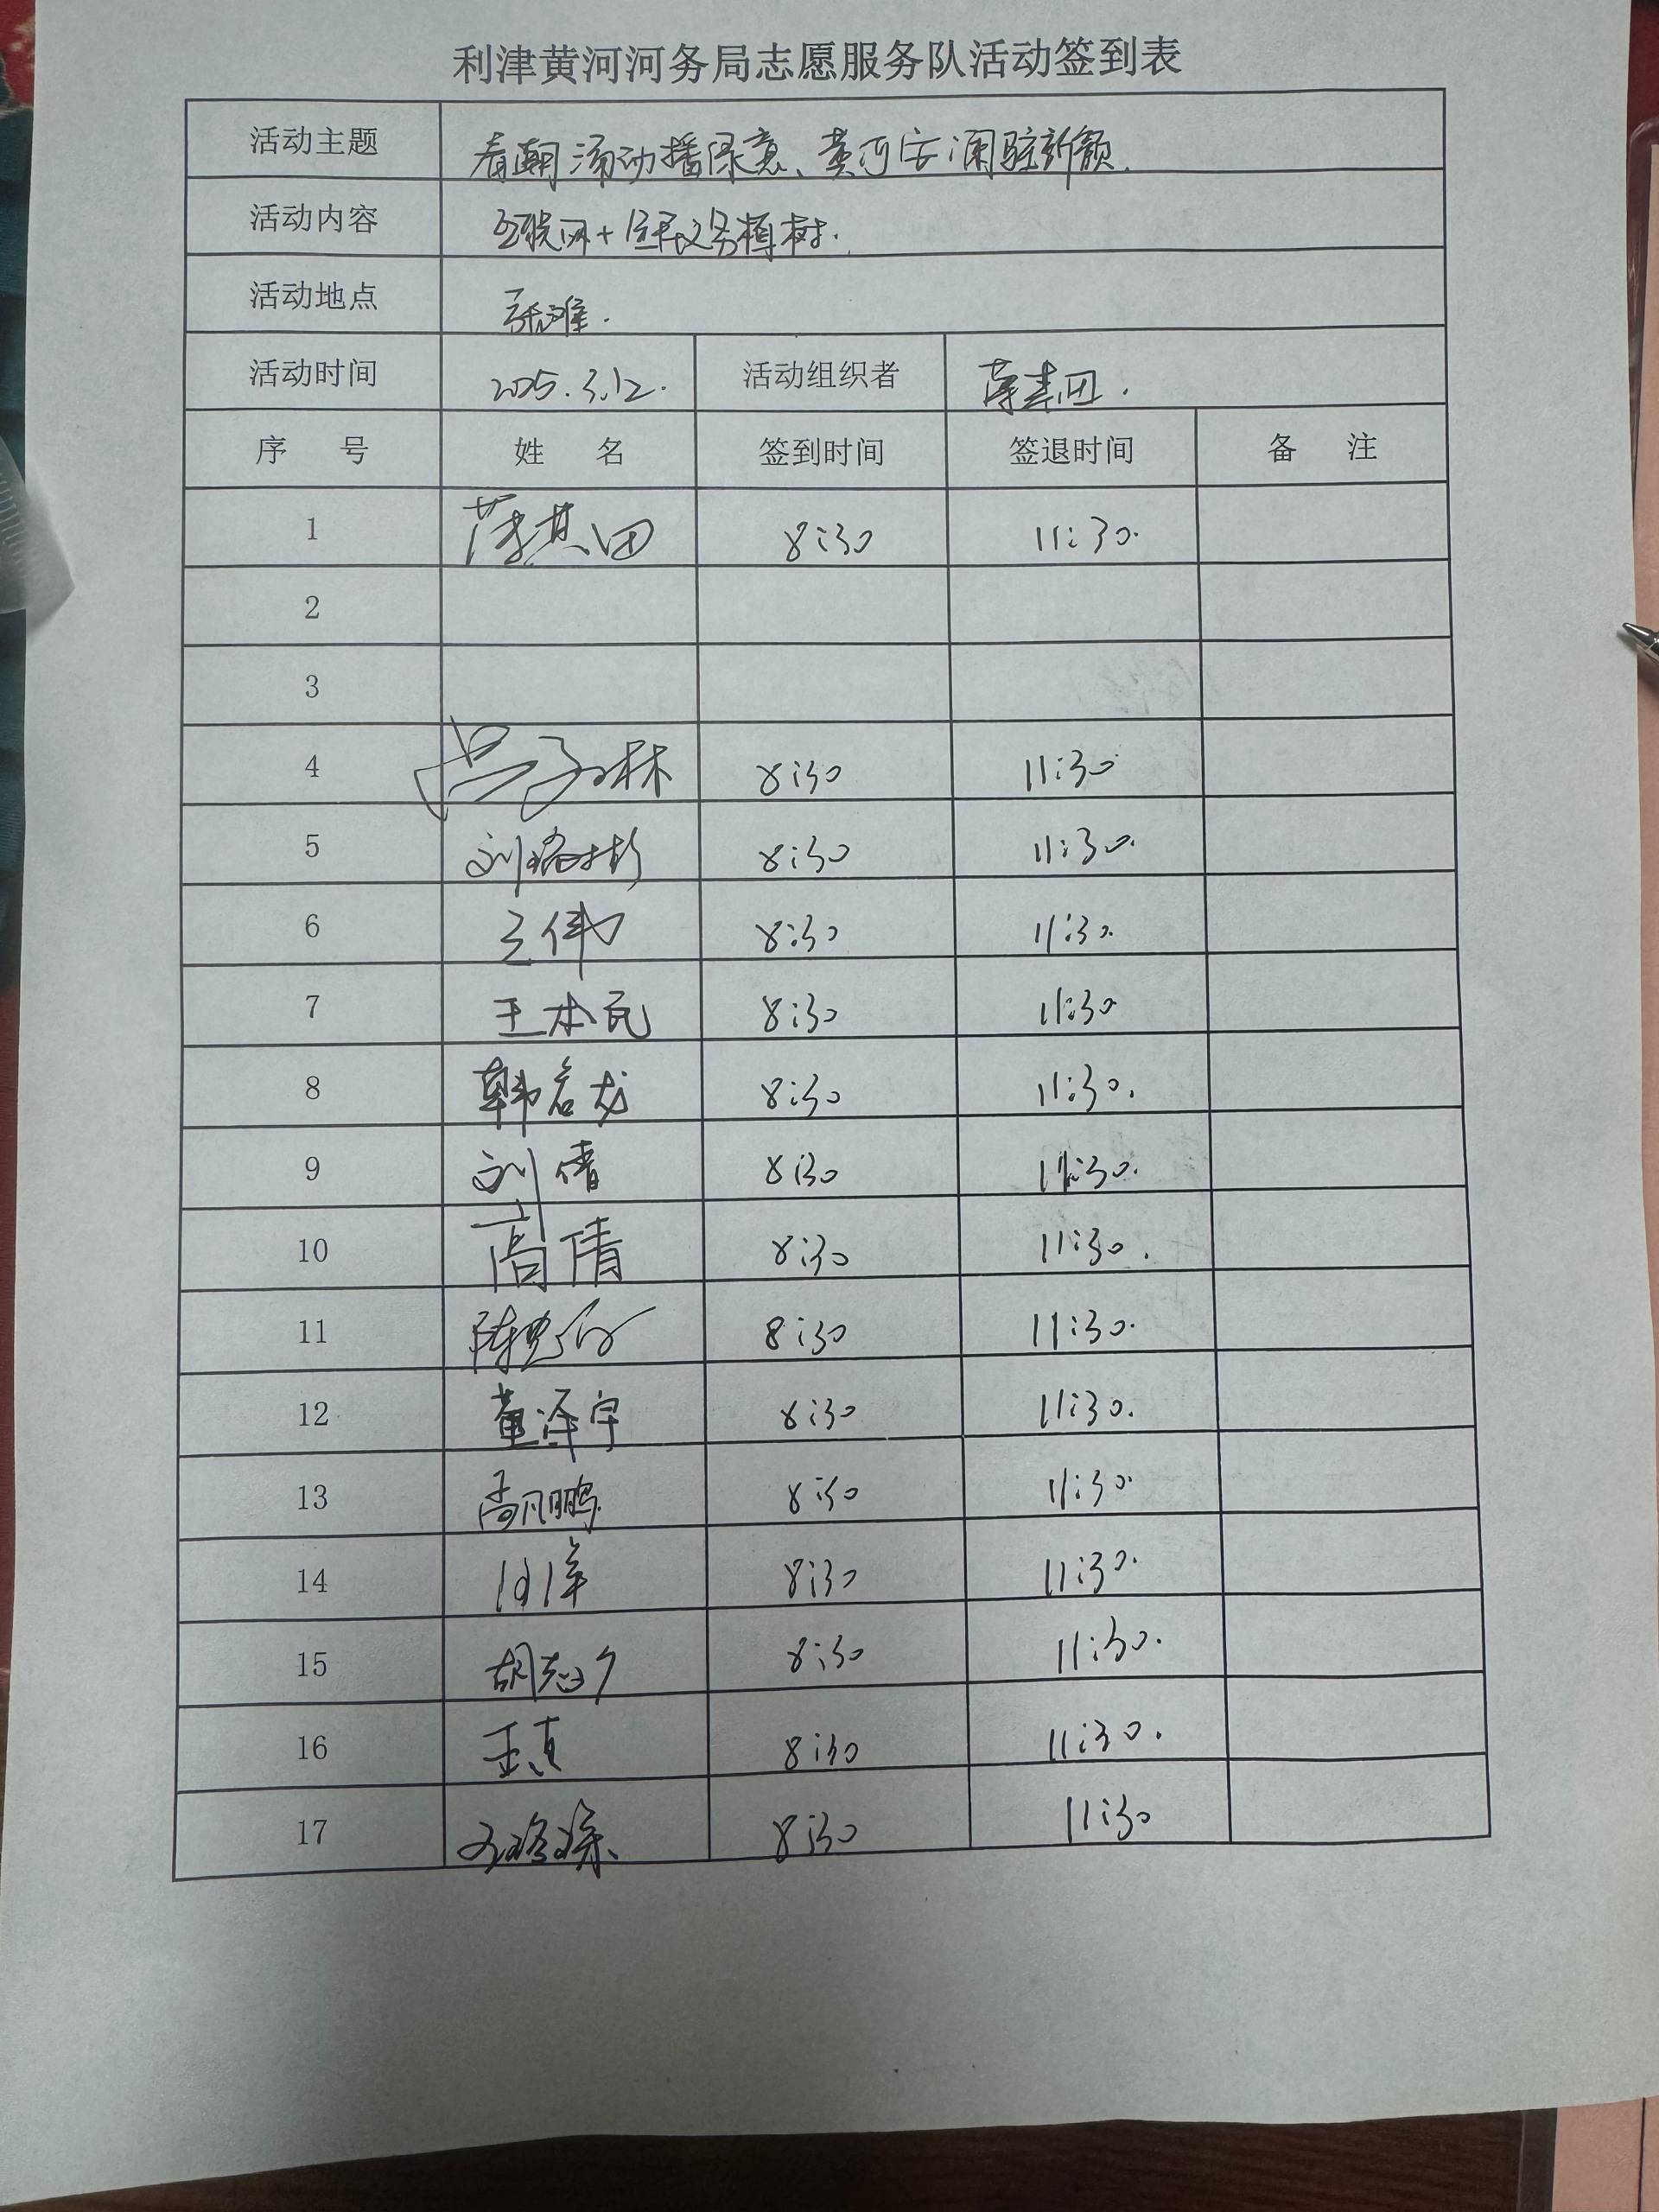 利津黄河河务局志愿服务队活动签到表
活动主题 春潮涌动播绿意、黄河安澜驻新颜.
活动内容 互联网+全民义务植树.
活动地点 张滩.
活动时间 2025.3.12. 活动组织者 田.
序 号 姓 名 签到时间 签退时间 备 注
1 田 8:30 11:30.
2
3
4 林 8:30 11:30
5 刘 8:30 11:30.
6 王伟 8:30 11:30.
7 王本 8:30 11:30
8 韩名龙 8:30 11:30.
9 刘倩 8:30 11:30.
10 高倩 8:30 11:30.
11 陈 8:30 11:30.
12 董泽宇 8:30 11:30.
13 高凡鹏 8:30 11:30.
14 8:30 11:30.
15 胡志 8:30 11:30.
16 王真 8:30 11:30.
17 8:30 11:30